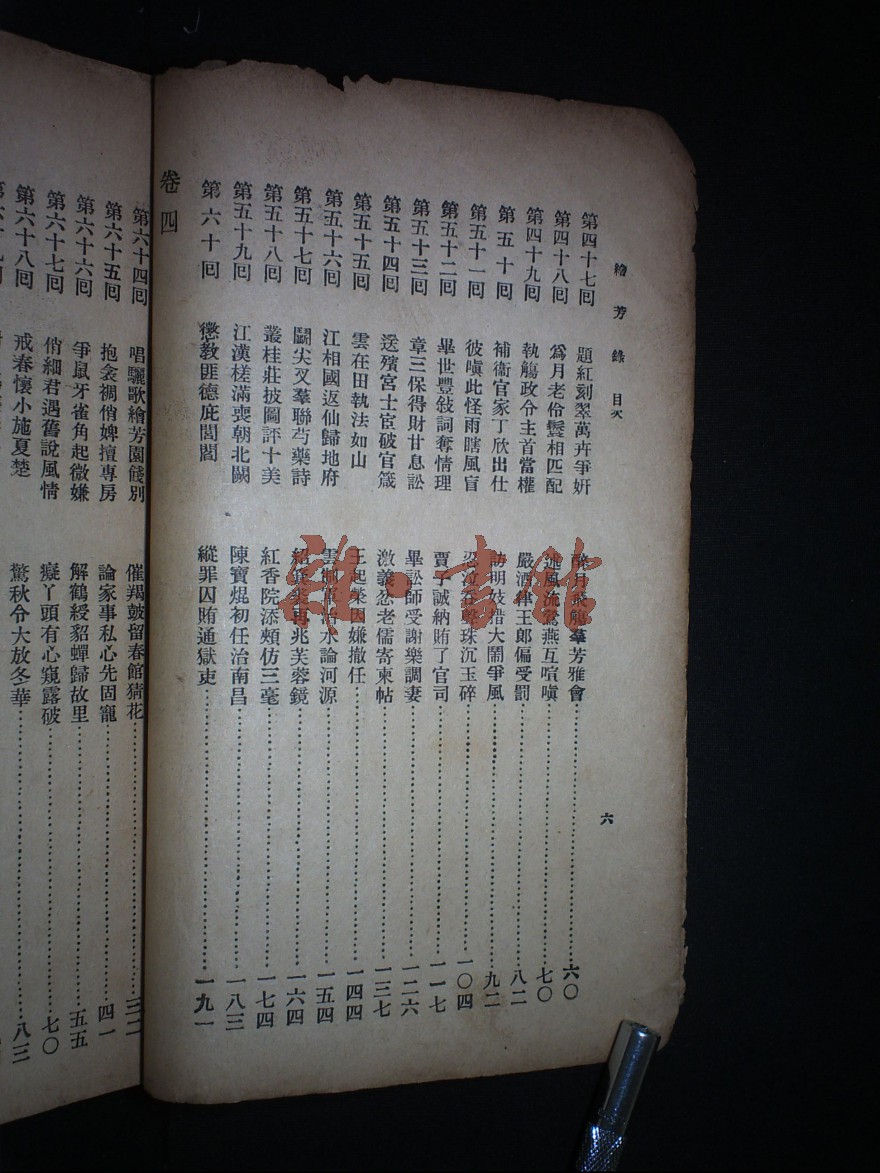 繪芳錄 目次
六
第四十七回 題紅刻翠萬卉爭姸 醉月飛觴羣芳雅會 六〇
第四十八回 爲月老伶鬟相匹配 述風流鶯燕互喧嗔 七〇
第四十九回 執觴政令主首當權 嚴酒律王郎偏受罰 八二
第五十回 補衞官家丁欣出仕 訪明妓措大鬧爭風 九二
第五十一回 彼嗔此怪雨瞎風盲 忍 珠沉玉碎 一〇四
第五十二回 畢世豐敍詞奪情理 賈子誠納賄了官司 一一七
第五十三回 章三保得財甘息訟 畢訟師受謝樂調妻 一二六
第五十四回 送殯宮士宦破官箴 激義忿老儒寄柬帖 一三七
第五十五回 雲在田執法如山 王起榮因嫌撤任 一四四
第五十六回 江相國返仙歸地府 雲制軍治水論河源 一五四
第五十七回 鬭尖叉羣聯芍藥詩 紹 再兆芙蓉鏡 一六四
第五十八回 叢桂莊披圖評十美 紅香院添頰仿三毫 一七四
第五十九回 江漢槎滿喪朝北闕 陳寶焜初任治南昌 一八三
第六十回 懲教匪德庇閭閻 縱罪囚賄通獄吏 一九一
卷四
第六十四回 唱驪歌繪芳園餞別 催羯鼓留春館猜花 三二
第六十五回 抱衾裯俏婢擅專房 論家事私心先固寵 四一
第六十六回 爭鼠牙雀角起微嫌 解鶴綬貂蟬歸故里 五五
第六十七回 俏細君遇舊說風情 癡丫頭有心窺露破 七〇
第六十八回 戒春懷小施夏楚 驚秋令大放冬華 八三
雜·書館